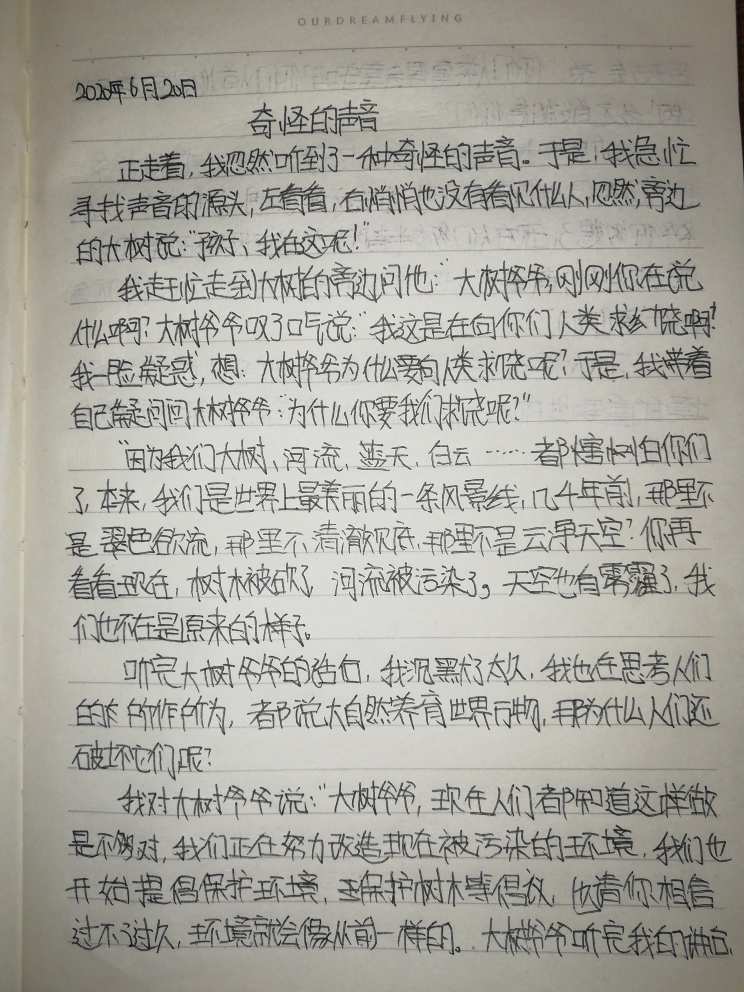 OURDREAMFLYING
2020年6月20日
奇怪的声音
正走着，我忽然听到了一种奇怪的声音。于是，我急忙
寻找声音的源头，左看看，右悄悄也没有看见什么人，忽然，旁边
的大树说："孩子、我在这呢！"
我赶忙走到大树的旁边问他："大树爷爷，刚刚你在说
什么啊？大树爷爷叹了口气说："我这是在向你们人类求饶啊？
我一脸疑惑，想：大树爷爷为什么要向人类求饶呢？于是，我带着
自己疑问问大树爷爷："为什么你要我们求饶呢？"
"因为我们大树、河流、蓝天、白云……都害怕你们
了，本来，我们是世界上最美丽的一条风景线，几千年前，那里不
是翠色欲流，那里不清澈见底，那里不是云净天空？你再
看看现在，树木被砍了 河流被污染了。天空也有雾霾了，我
们也不在是原来的样子。
听完大树爷爷的话，我沉默了太久，我也在思考人们
的所作所为，都说大自然养育世界万物，那为什么人们还
破坏它们呢？
我对大树爷爷说："大树爷爷，现在人们都知道这样做
是不对，我们正在努力改造现在被污染的环境，我们也
开始提倡保护环境，保护树木等倡议，也请你相信
过不了过久，环境就会像从前一样的。大树爷爷听完我的讲话，